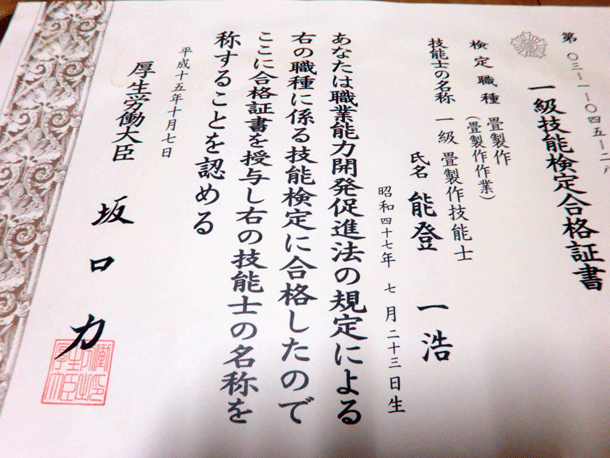 第〇三-一-〇四五-二八
一級技能検定合格証書
検定職種 畳製作
(畳製作作業)
技能士の名称 一級 畳製作技能士
氏名 能登 一浩
昭和四十七年 七月二十三日生
あなたは職業能力開発促進法の規定による
右の職種に係る技能検定に合格したので
ここに合格証書を授与し右の技能士の名称を
称することを認める
平成十五年十月七日
厚生労働大臣 坂口力